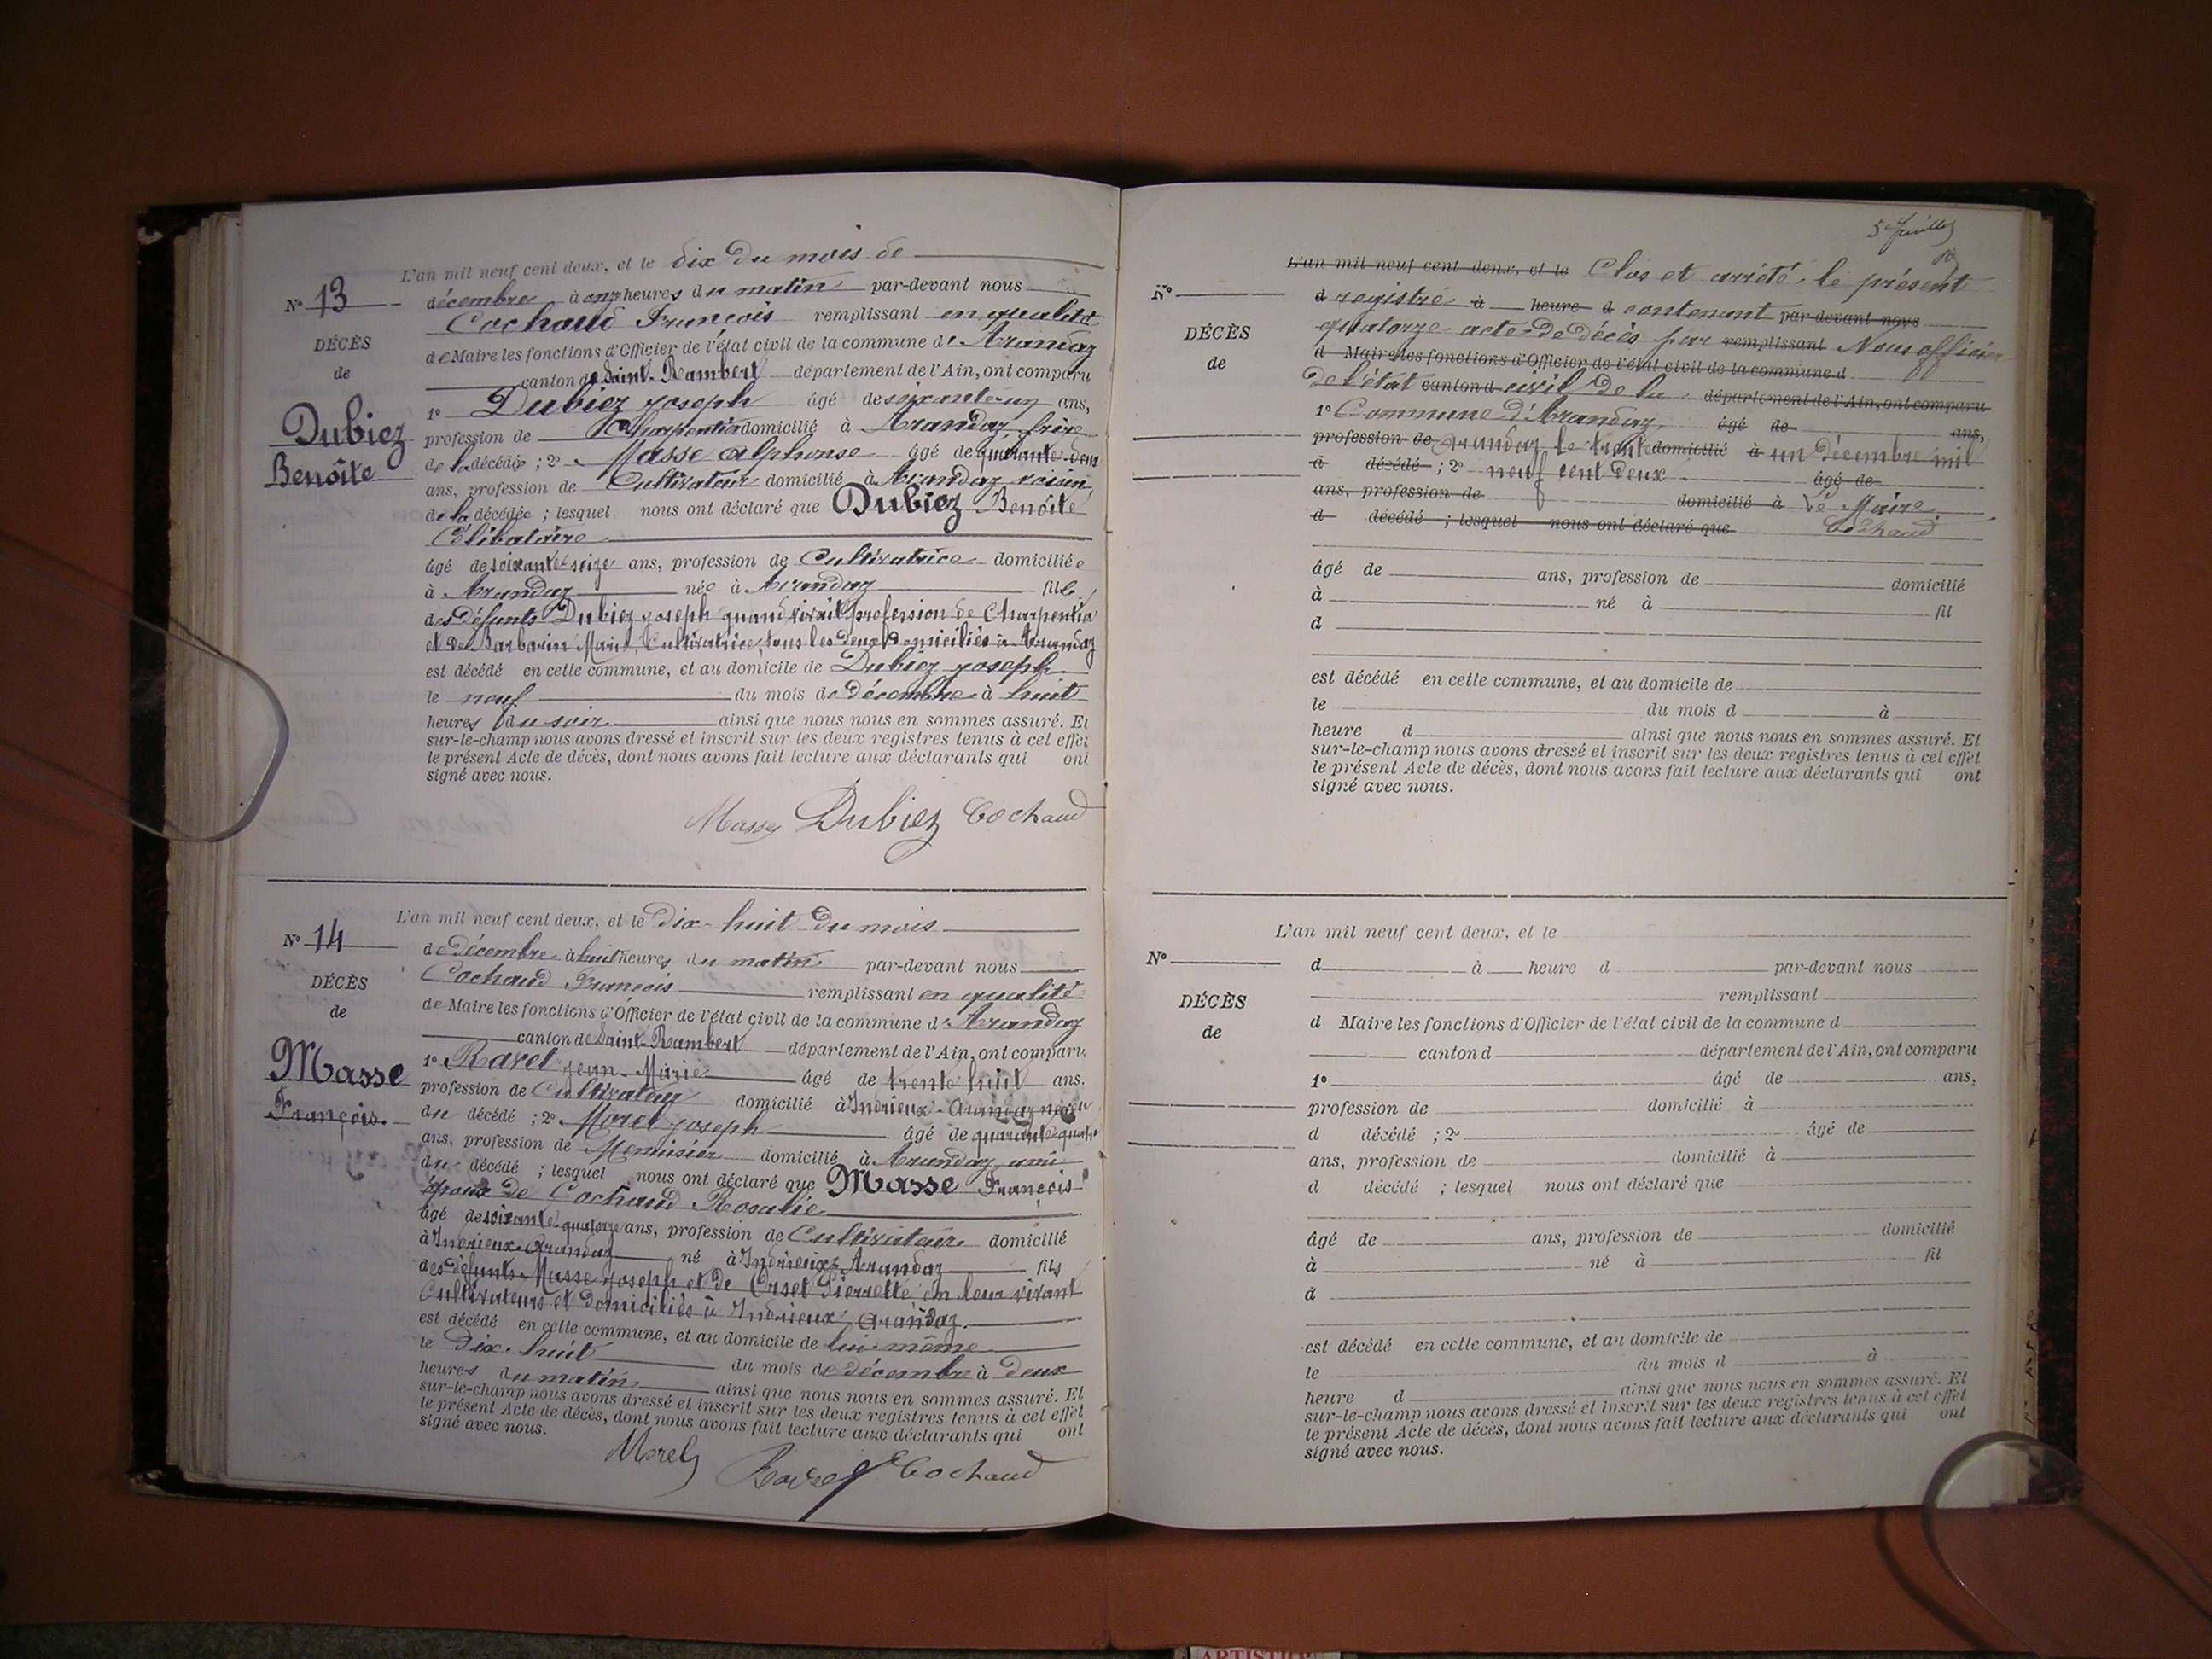 L'an mil neuf cent deux, et le dix du mois de
N° 13
décembre à onze heures du matin par-devant nous
Cochaud François remplissant en qualité
DÉCÈS
de Maire les fonctions d'Officier de l'état civil de la commune d'Arandaz
de
canton de Saint-Rambert département de l'Ain, ont comparu
1° Dubiez Joseph âgé de soixante-un ans,
Dubiez
profession de Charpentier domicilié à Arandaz frère
Benoîte
de la décédée ; 2° Masse Alphonse âgé de quarante-deux
ans, profession de Cultivateur domicilié à Arandaz voisin
de la décédée ; lesquel nous ont déclaré que Dubiez Benoîte
Célibataire
âgé de soixante-seize ans, profession de Cultivatrice domiciliée
à Arandaz née à Arandaz fille
des défunts Dubiez Joseph quand vivait profession de Charpentier
et de Barbarin Marie Cultivatrice, tous les deux domiciliés à Arandaz
est décédé en cette commune, et au domicile de Dubiez Joseph
le neuf du mois de décembre à huit
heures du soir ainsi que nous nous en sommes assuré. Et
sur-le-champ nous avons dressé et inscrit sur les deux registres tenus à cet effet
le présent Acte de décès, dont nous avons fait lecture aux déclarants qui ont
signé avec nous.
Masse Dubiez Cochaud
L'an mil neuf cent deux, et le dix-huit du mois
N° 14
de décembre à huit heures du matin par-devant nous
Cochaud François remplissant en qualité
DÉCÈS
de Maire les fonctions d'Officier de l'état civil de la commune d'Arandaz
de
canton de Saint-Rambert département de l'Ain, ont comparu
1° Ravet Jean-Marie âgé de trente huit ans.
Masse
profession de Cultivateur domicilié à Indrieux-Arandaz neveu
François.
du décédé ; 2° Morel Joseph âgé de quarante-quatre
ans, profession de Menuisier domicilié à Arandaz, ami
du décédé ; lesquel nous ont déclaré que Masse François
époux de Cochaud Rosalie
âgé de soixante quatorze ans, profession de Cultivateur domicilié
à Indrieux-Arandaz né à Indrieux-Arandaz fils
des défunts Masse Joseph et de Orset Pierrette en leur vivant
Cultivateurs et domiciliés à Indrieux Arandaz.
est décédé en cette commune, et au domicile de lui-même
le dix-huit du mois de décembre à deux
heures du matin ainsi que nous nous en sommes assuré. Et
sur-le-champ nous avons dressé et inscrit sur les deux registres tenus à cet effet
le présent Acte de décès, dont nous avons fait lecture aux déclarants qui ont
signé avec nous.
Morel Ravet Cochaud
5e feuillet
L'an mil neuf cent deux, et le Clos et arrêté le présent
N°
d registre à heure d contenant par-devant nous
DÉCÈS
quatorze actes de décès par remplissant Nous officier
d Maire les fonctions d'Officier de l'état civil de la commune d
de
De l'état canton d civil de la département de l'Ain, ont comparu
1° Commune d'Arandaz, âgé de ans,
profession de Arandaz le trente domicilié à un Décembre mil
d décédé ; 2° neuf cent deux âgé de
ans, profession de domicilié à Le Maire
d décédé ; lesquel nous ont déclaré que Cochaud
âgé de ans, profession de domicilié
à né à fil
d
est décédé en cette commune, et au domicile de
le du mois d à
heure d ainsi que nous nous en sommes assuré. Et
sur-le-champ nous avons dressé et inscrit sur les deux registres tenus à cet effet
le présent Acte de décès, dont nous avons fait lecture aux déclarants qui ont
signé avec nous.
L'an mil neuf cent deux, et le
N°
d à heure d par-devant nous
remplissant
DÉCÈS
d Maire les fonctions d'Officier de l'état civil de la commune d
de
canton d département de l'Ain, ont comparu
1° âgé de ans,
profession de domicilié à
d décédé ; 2° âgé de
ans, profession de domicilié à
d décédé ; lesquel nous ont déclaré que
âgé de ans, profession de domicilié
à né à fil
d
est décédé en cette commune, et au domicile de
le du mois d à
heure d ainsi que nous nous en sommes assuré. Et
sur-le-champ nous avons dressé et inscrit sur les deux registres tenus à cet effet
le présent Acte de décès, dont nous avons fait lecture aux déclarants qui ont
signé avec nous.